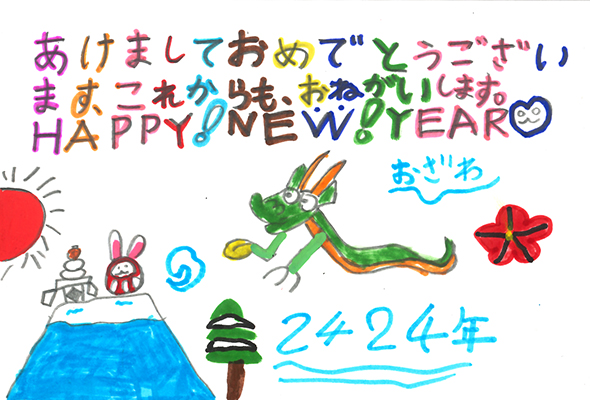 あけましておめでとうござい
ます、これからも、おねがいします。
HAPPY!NEW!YEAR
おざわ
2424年